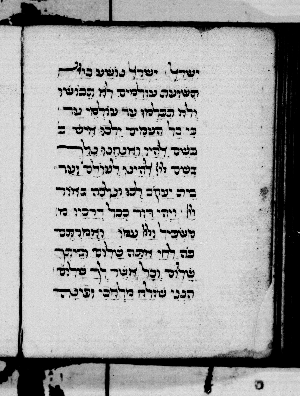 ישראל ישראל נושע ביי
תשועת עולמים לא תבושו
ולא תכלמו עד עולמי עד
כי כל העמים ילכו איש ב
בשם להיו ואנחנו נלך
בשם ייי להינו לעולם ועד
בית יעקב לכו ונלכה באור
ייי ויהי דוד בכל דרכיו מ
משכיל וייי עמו ואמרתם
כה לחי אתה שלום וביתך
שלום וכל אשר לך שלום
הנני שולח מלאכי ופנה